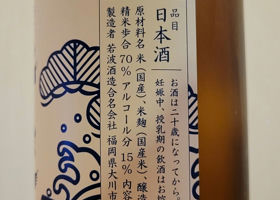 品目
日本酒
お酒は二十歳になってから。
妊娠中、授乳期の飲酒はお控
原材料名 米(国産)、米麹(国産米)、醸造
精米歩合 70% アルコール分 15% 内容
製造者 若波酒造合名会社 福岡県大川市